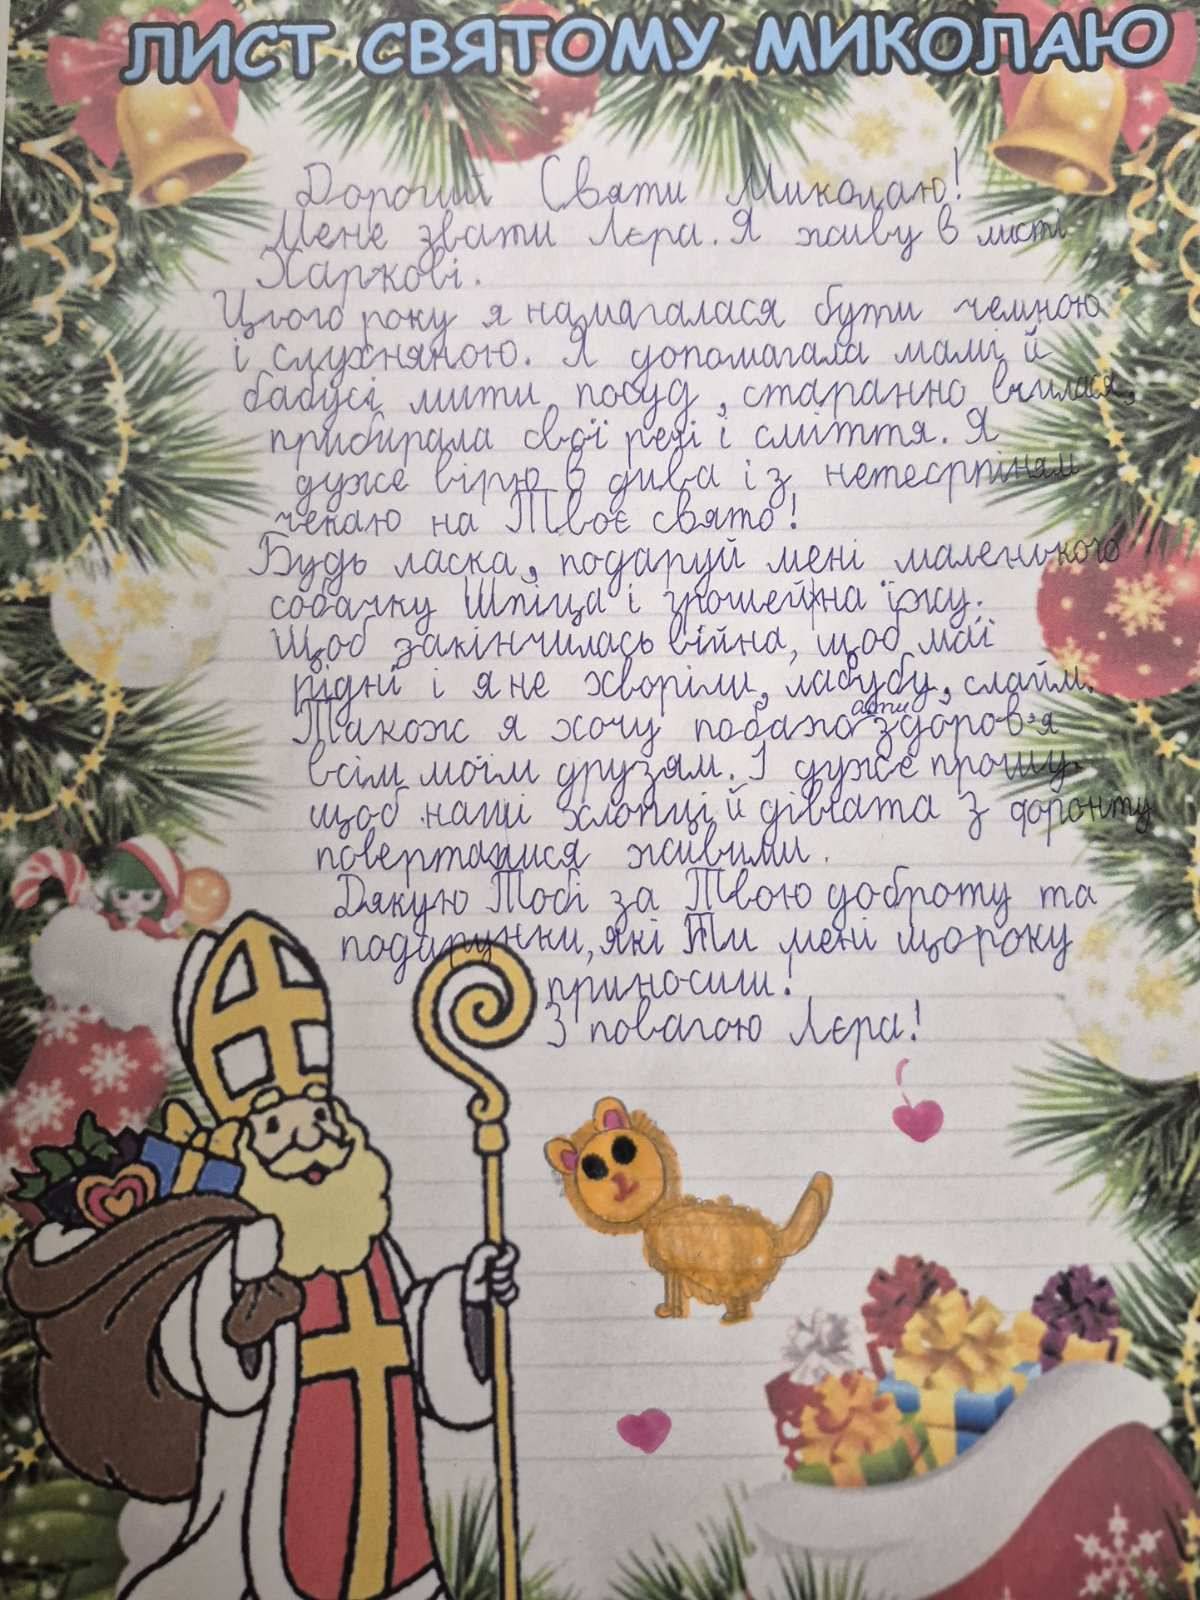 ЛИСТ СВЯТОМУ МИКОЛАЮ
Дорогий Святи Миколаю!
Мене звати Лєра. Я живу в місті
Харкові.
Цього року я намагалася бути чемною
і слухняною. Я допомагала мамі й
бабусі мити посуд, старанно вчилася,
прибирала свої речі і сміття. Я
дуже вірю в дива і з нетесрпіням
чекаю на Твоє свято!
Будь ласка, подаруй мені маленького
собачку Шпіца і грошей на їжу.
Щоб закінчилась війна, щоб мої
рідні і я не хворіли, лабубу, слайм.
Також я хочу побажати здоров'я
всім моїм друзям. І дуже прошу
щоб наші хлопці й дівчата з фронту
поверталися живими.
Дякую Тобі за Твою доброту та
подарунки, які Ти мені щороку
приносили!
З повагою Лєра!